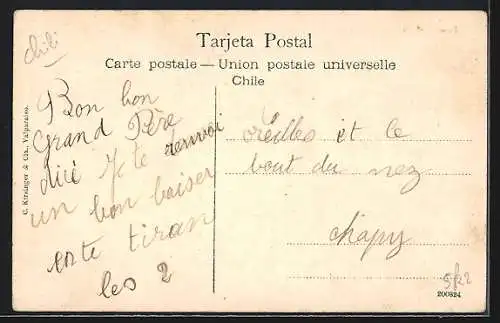 chili
Tarjeta Postal
Carte postale — Union postale universelle
Chile
C. Kirsinger & Cia., Valparaiso.
Bon bon
Grand Père
Je te renvoi
un bon baiser
en te tiran
les 2
oreilles et le
bout du nez
chapy
5/22
200824